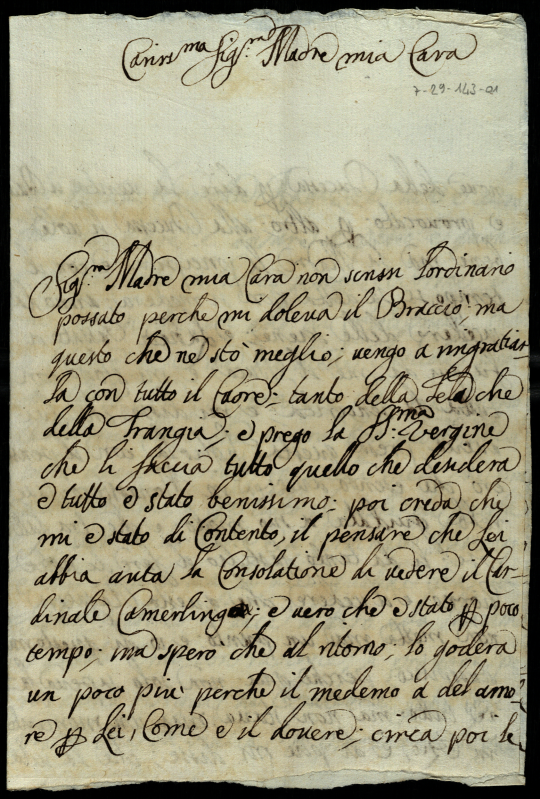 Cariss.ma Sig.ra Madre mia Cara
7-29-143-01
Sig.ra Madre mia Cara non scrissi l'ordinario
possato perche mi doleva il Braccio; ma
questo che ne stò meglio; vengo a ringratiar-
la con tutto il Cuore; tanto della Tela che
della frangia; e prego la SS.ma Vergine
che li faccia tutto quello che desidera
e tutto è stato benissimo; poi creda che
mi è stato di Contento, il pensare che Lei
abbia auta la Consolatione di vedere il Car-
dinale Camerlingo; e vero che e stato p poco
tempo; ma spero che al ritorno; lo goderà
un poco più perche il medemo a del amo-
re p Lei, Come e il dovere; circa poi le